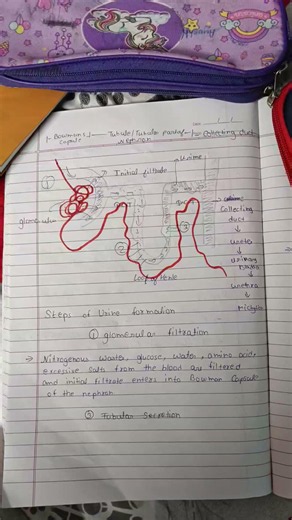 Bowman's capsule
Tubule/Tubular part of Nephron
Collecting duct
Initial filtrate
Urine
①
②
③
Collecting
duct
Ureter
Urinary
Urethra
Loop of Henle
Steps of Urine formation
① glomerular filtration
→ Nitrogenous waste, glucose, water, amino acid,
excessive salts from the blood are filtered
and initial filtrate enters into Bowman Capsule
of the nephron